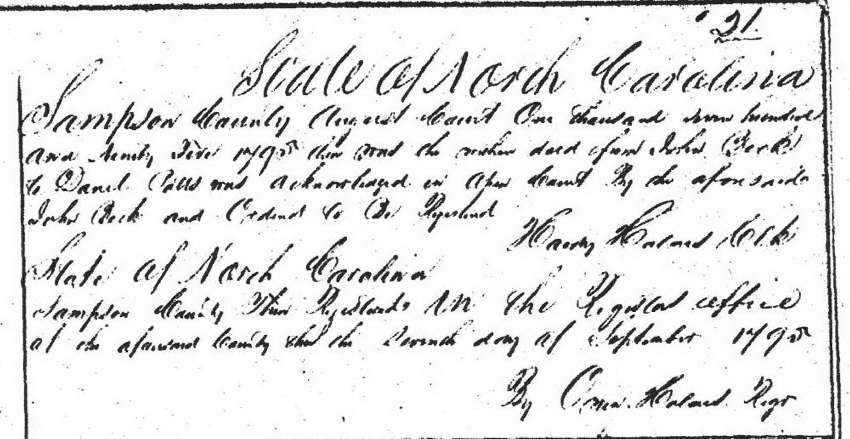 21
State of North Carolina
Sampson County August Court One thousand seven hundred
and Ninety Five 1795 then was the within deed from John Beck
to Daniel Potts was acknowledged in Open Court By the aforesaid
John Beck and Ordered to Be Registered
Hardy Holmes Clk
State of North Carolina
Sampson County Then Registered In the Registers office
of the aforesaid County this the Seventh day of September 1795
By Owen Holmes Regr